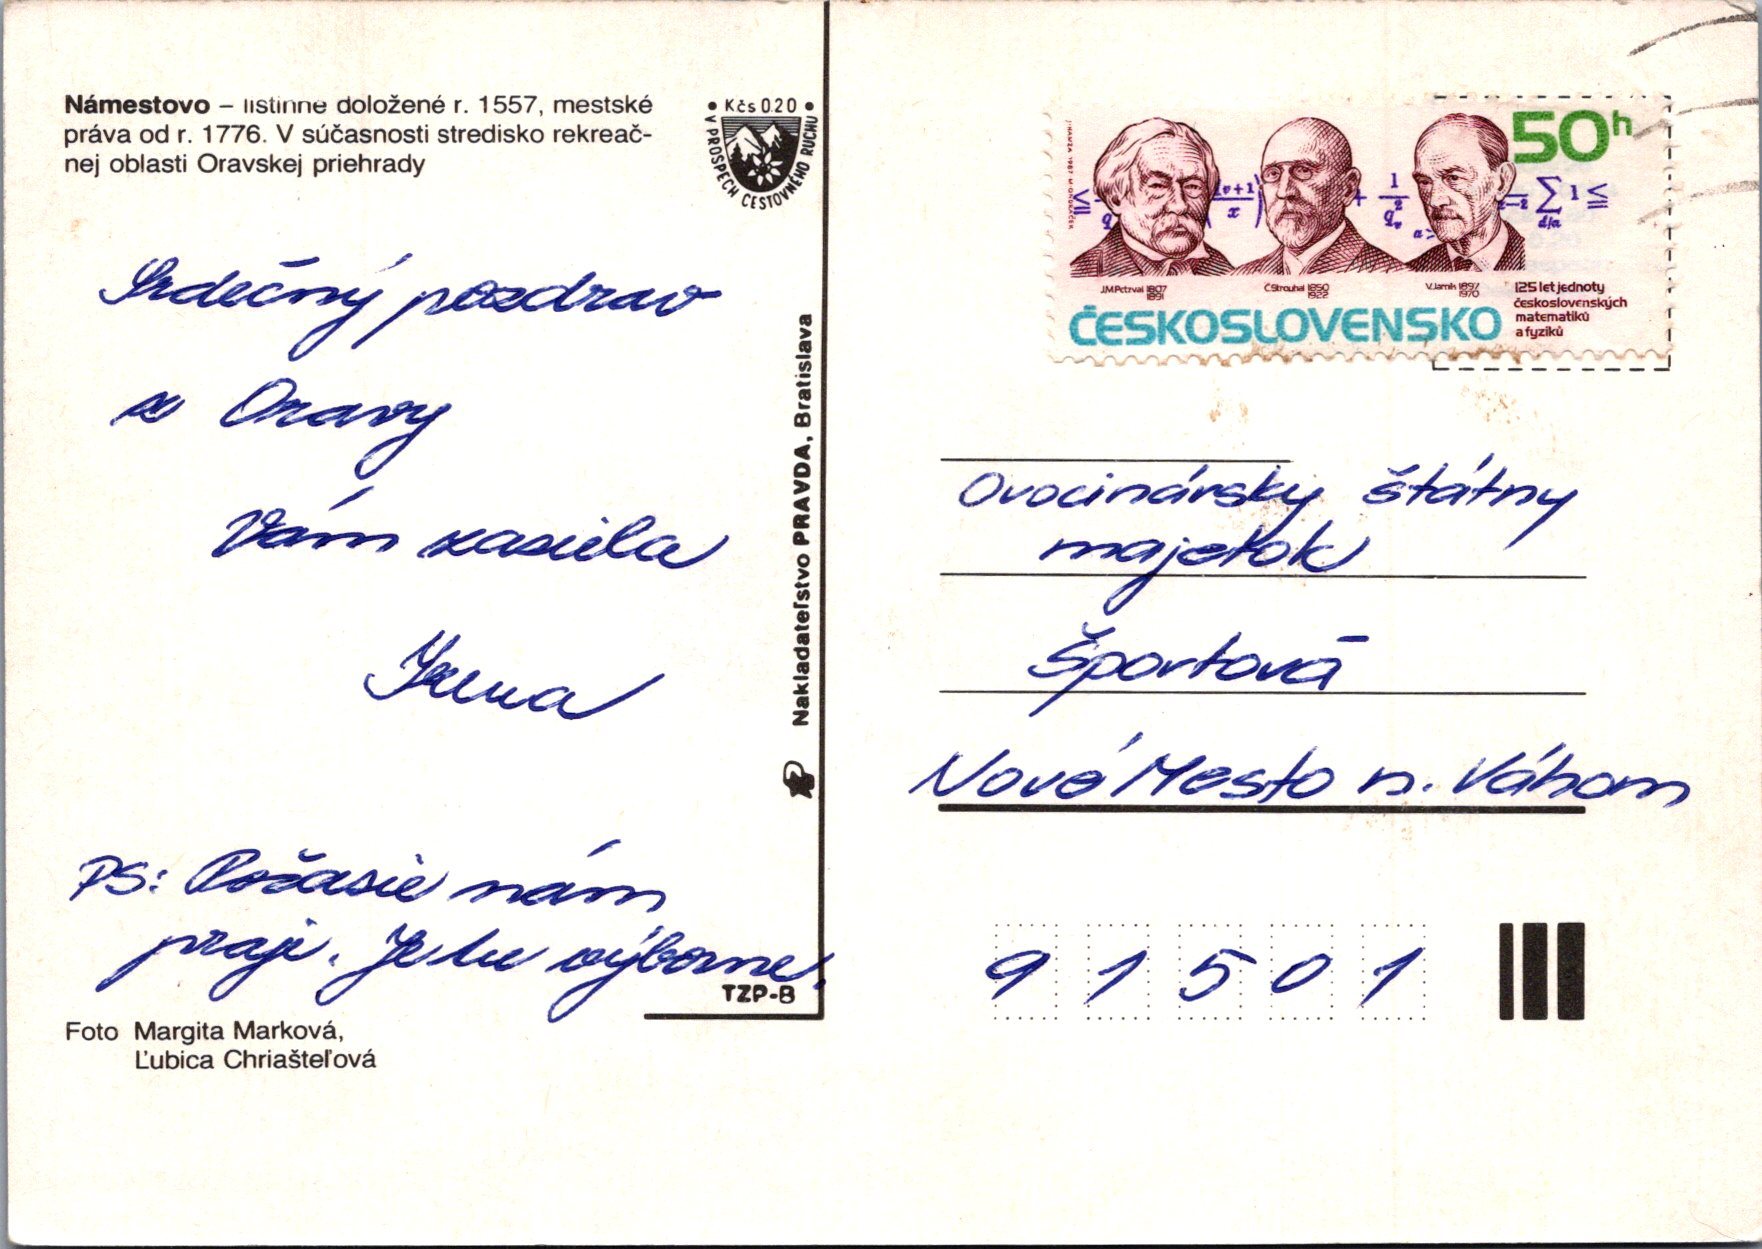 Námestovo – listinne doložené r. 1557, mestské
práva od r. 1776. V súčasnosti stredisko rekreač-
nej oblasti Oravskej priehrady
• Kčs 0.20 •
V PROSPECH CESTOVNÉHO RUCHU
Srdečný pozdrav
z Oravy
Vám zasiela
PS: Požasie nám
praje. Je tu výborne.
TZP-B
Foto Margita Marková,
Ľubica Chriašteľová
Nakladateľstvo PRAVDA, Bratislava
50h
J.M.Petzval 1807
1891
Č.Strouhal 1850
1922
V.Jarník 1897
1970
125 let jednoty
československých
matematiků
a fyziků
ČESKOSLOVENSKO
Ovocinársky štátny
majetok
Športová
Nové Mesto n. Váhom
9 1 5 0 1